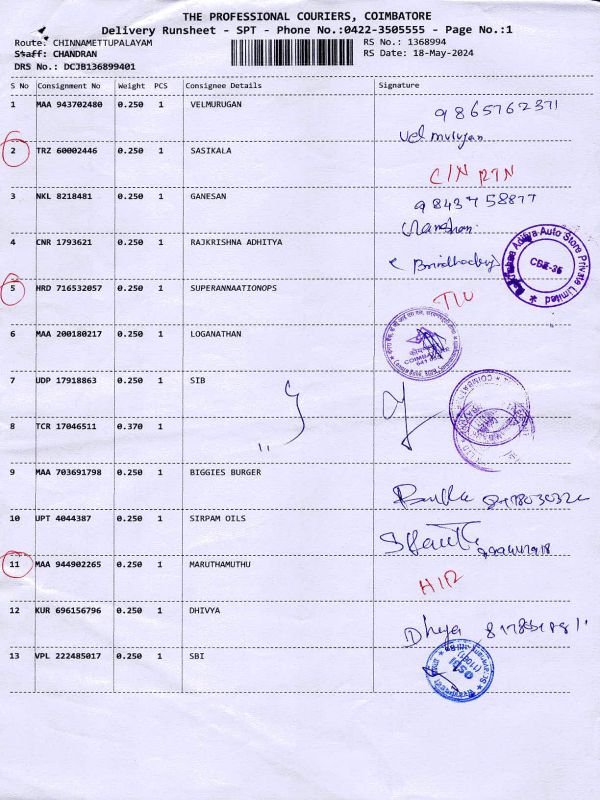 THE PROFESSIONAL COURIERS, COIMBATORE
Delivery Runsheet - SPT - Phone No.:0422-3505555 - Page No.:1
Route: CHINNAMETTUPALAYAM RS No.: 1368994
Staff: CHANDRAN RS Date: 18-May-2024
DRS No.: DCJB136899401
S No Consignment No Weight PCS Consignee Details Signature
1 MAA 943702480 0.250 1 VELMURUGAN 9865762371
Velmurugan
2 TRZ 60002446 0.250 1 SASIKALA
C/N RTN
3 NKL 8218481 0.250 1 GANESAN 9843758877
4 CNR 1793621 0.250 1 RAJKRISHNA ADHITYA
Aditya Auto Store Private Limited
CBE-36
5 HRD 716532057 0.250 1 SUPERANNAATIONOPS
6 MAA 200180217 0.250 1 LOGANATHAN
7 UDP 17918863 0.250 1 SIB
8 TCR 17046511 0.370 1
9 MAA 703691798 0.250 1 BIGGIES BURGER
10 UPT 4044387 0.250 1 SIRPAM OILS
11 MAA 944902265 0.250 1 MARUTHAMUTHU
12 KUR 696156796 0.250 1 DHIVYA
13 VPL 222485017 0.250 1 SBI